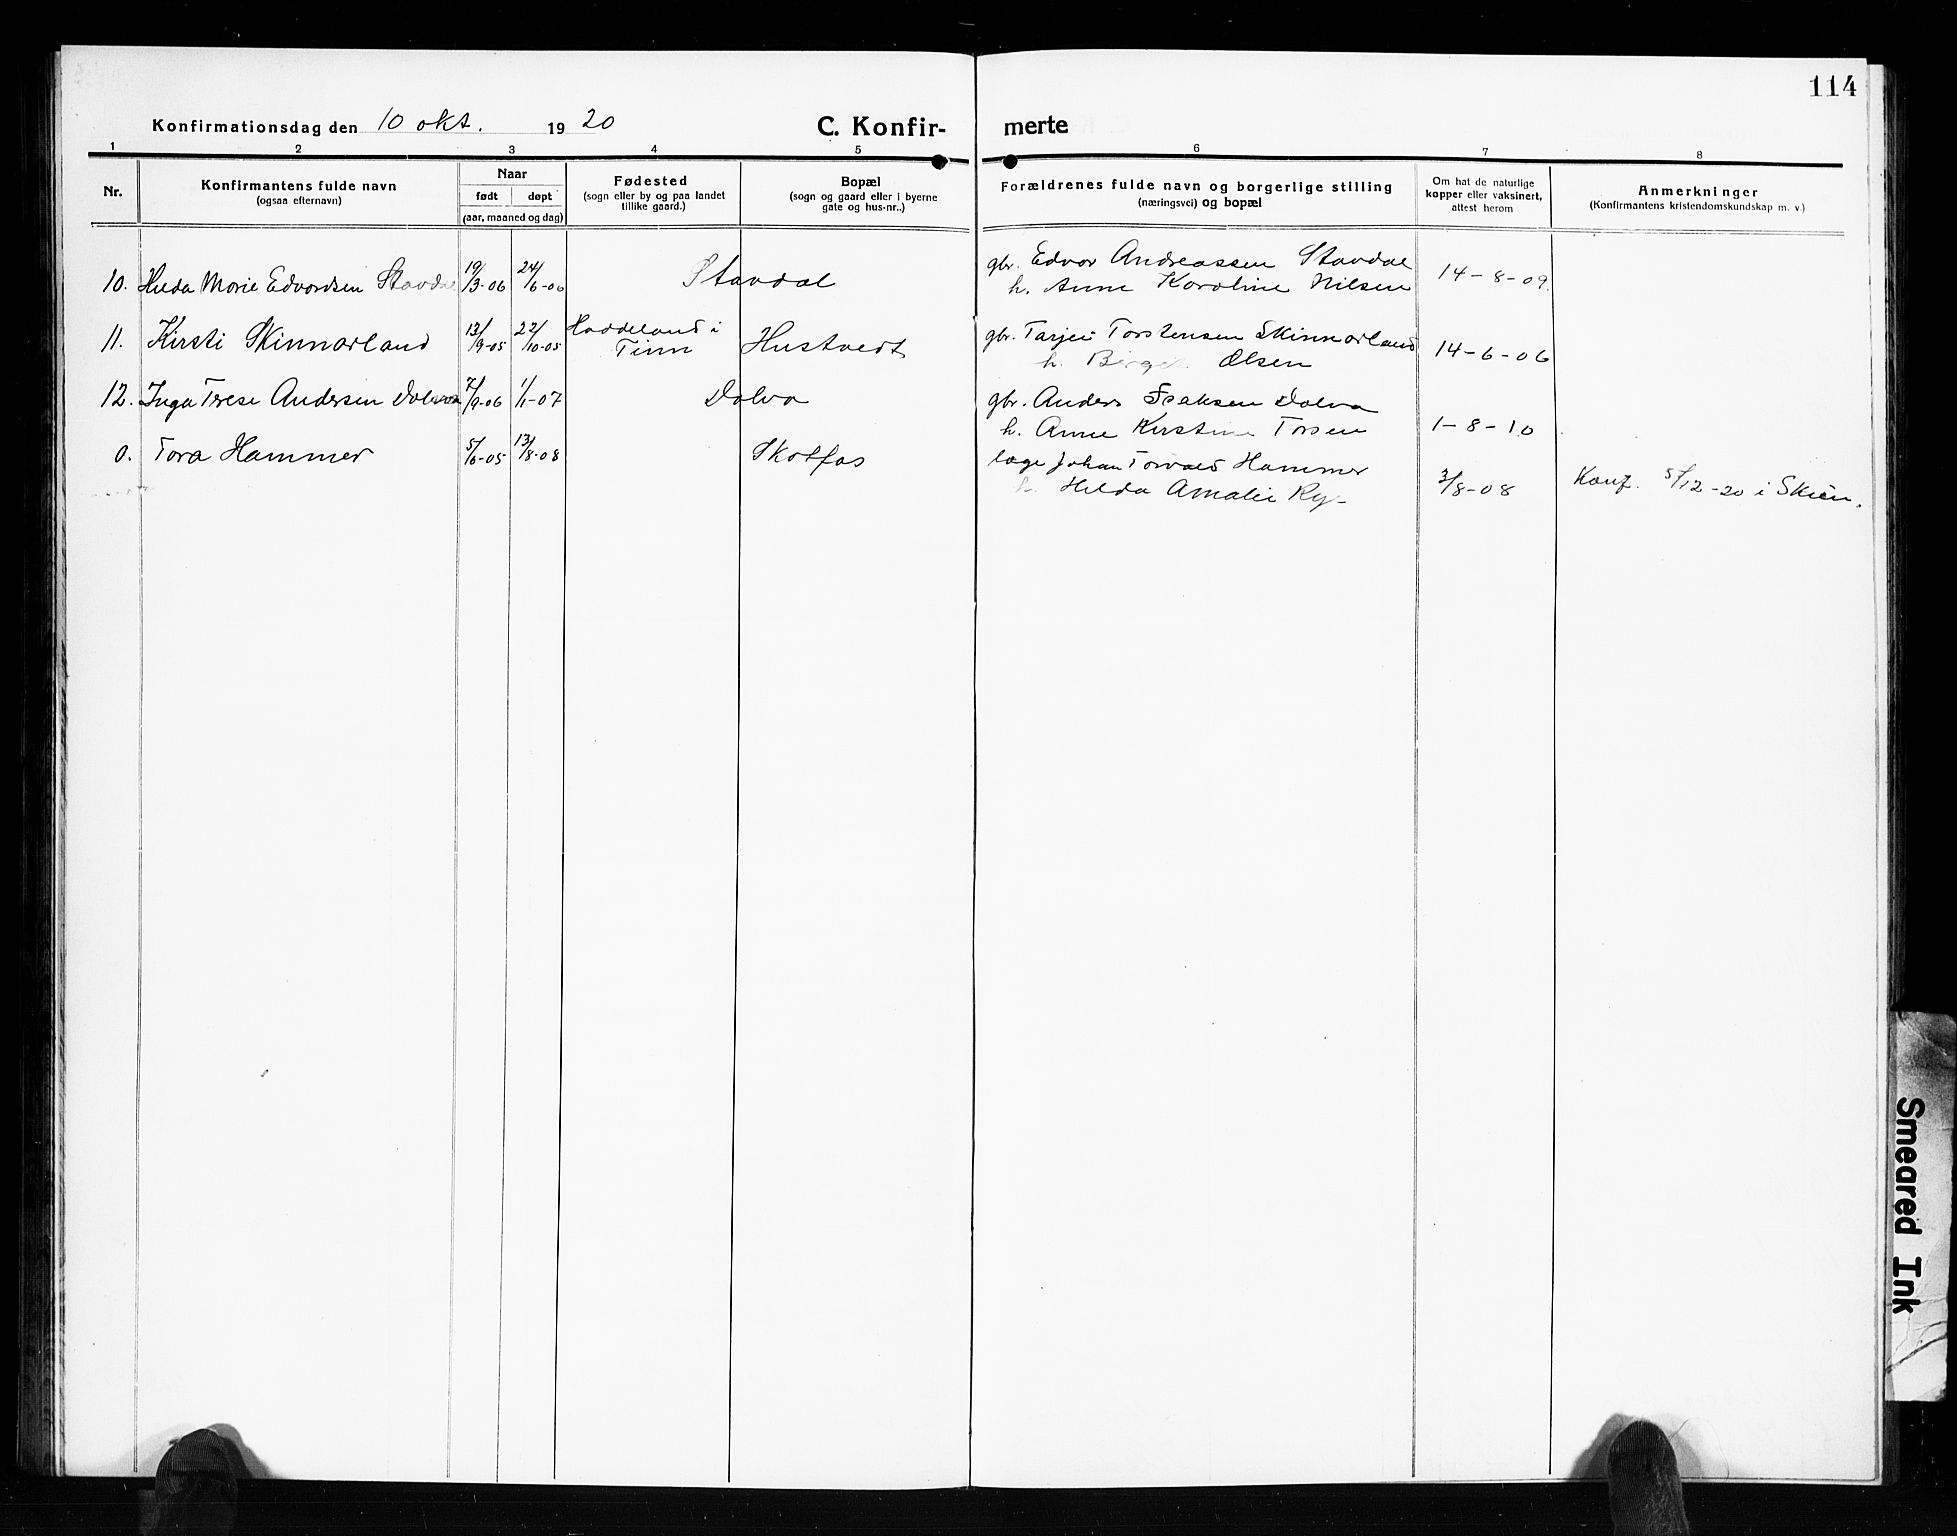 114
Konfirmationsdag den 10 okt. 1920
C. Konfir- merte
1 2 3 4 5 6 7 8
Nr.
Konfirmantens fulde navn
(ogsaa efternavn)
Naar
født døpt
(aar, maaned og dag)
Fødested
(sogn eller by og paa landet
tillike gaard.)
Bopæl
(sogn og gaard eller i byerne
gate og hus-nr..)
Forældrenes fulde navn og borgerlige stilling
(næringsvei) og bopæl
Om hat de naturlige
kopper eller vaksinert,
attest herom
Anmerkninger
(Konfirmantens kristendomskundskap m. v.)
10. Hilda Marie Edvardsen Stavdal 19/3-06 24/6-06 Stavdal gbr. Edvar Andreassen Stavdal 14-8-09.
h. Anne Karoline Nilsen
11. Kirsti Skinnarland 13/9-05 22/10-05 Haddeland i Tinn Hustvedt gbr. Tarjei Torstensen Skinnarland 14-6-06
h. Olsen
12. Inga Terese Andersen Dalva 7/9-06 1/1-07 Dalva gbr. Anders Isaksen Dalva
h. Anne Kirstine Torsen 1-8-10
0. Tora Hammer 5/6-05 13/8-08 Skotfos læge Johan Torvald Hammer
h. Hilda Amalie Ry- 3/8-08 Konf. 5/12-20 i Skien.
Smeared Ink